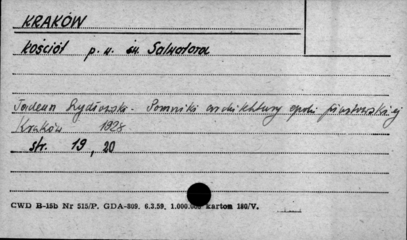 KRAKÓW
Kościół p. w. św. Salwatora
Pomniki architektury epoki piastowskiej
Kraków 1928
str. 19, 20
CWD B-15b Nr 515/P. GDA-809. 6.3.59. 1.000.000 karton 180/V.